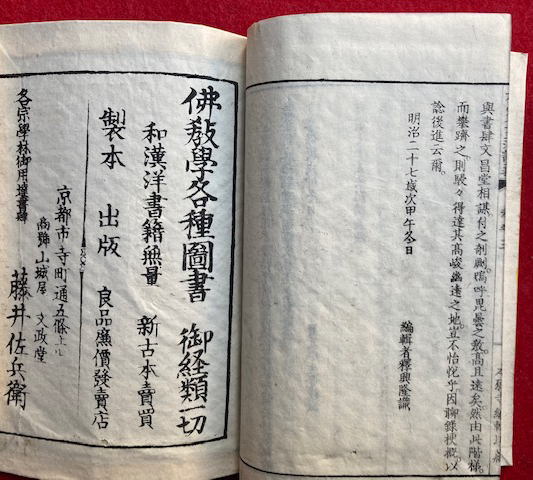 與書肆文昌堂相謀付之剞劂。嗚呼毘曇之教。高且遠矣。然由此階梯。
而樂躋之。則駸々得達其高峻幽遠之地。豈不怡悅乎。因聊錄梗概。以
諗後進云爾。
明治二十七歲次甲午冬日
編輯者釋興隆識
佛教學各種圖書 御経類一切
和漢洋書籍無量 新古本賣買
製本 出版 良品廉價發賣店
京都市寺町通五條上ル
商號 山城屋 文政堂
各宗學林御用達書肆 藤井佐兵衛